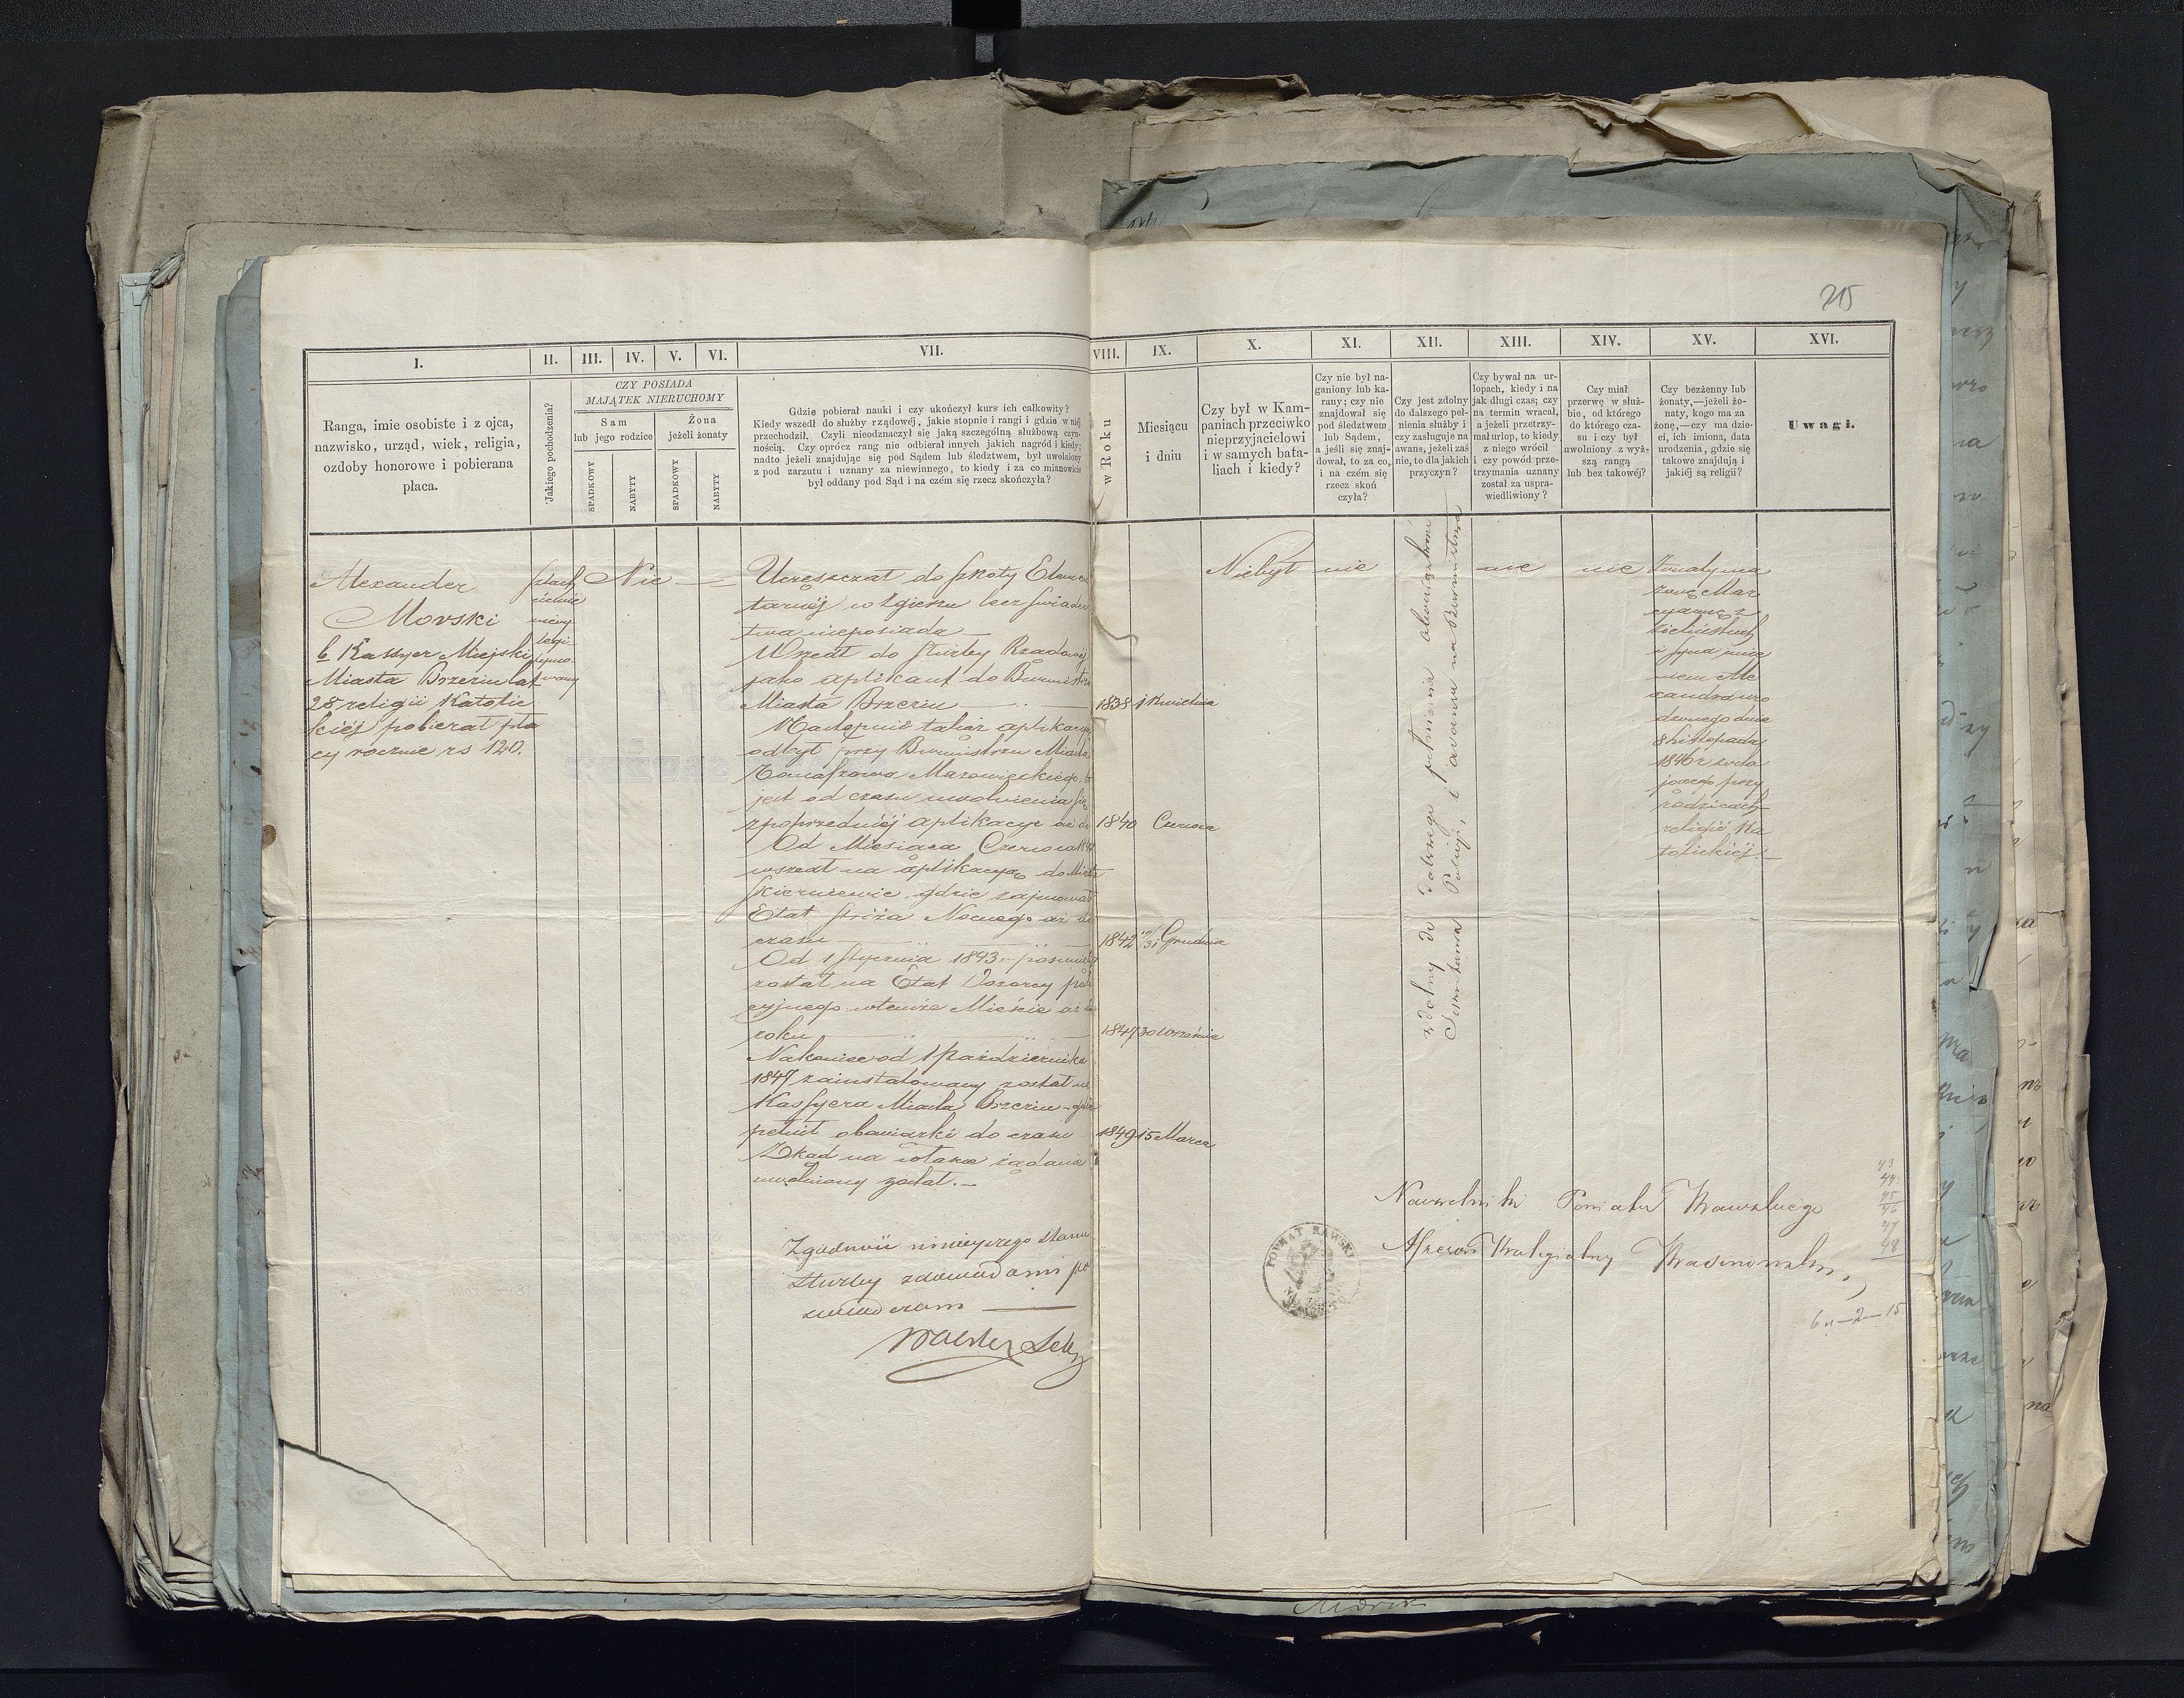 215
I.
II.
III.
IV.
V.
VI.
VII.
VIII.
IX.
X.
XI.
XII.
XIII.
XIV.
XV.
XVI.
Ranga, imie osobiste i z ojca,
nazwisko, urząd, wiek, religia,
ozdoby honorowe i pobierana
płaca.
Jakiego pochodzenia?
CZY POSIADA
MAJĄTEK NIERUCHOMY
Sam
lub jego rodzice
Żona
jeżeli żonaty
SPADKOWY
NABYTY
SPADKOWY
NABYTY
Gdzie pobierał nauki i czy ukończył kurs ich całkowity?
Kiedy wszedł do służby rządowéj, jakie stopnie i rangi i gdzie w niéj
przechodził. Czyli nieodznaczył się jaką szczególną służbową czyn-
nością. Czy oprócz rang nie odbierał innych jakich nagród i kiedy;
nadto jeżeli znajdując się pod Sądem lub śledztwem, był uwolniony
z pod zarzutu i uznany za niewinnego, to kiedy i za co mianowicie
był oddany pod Sąd i na czém się rzecz skończyła?
w Roku
Miesiącu
i dniu
Czy był w Kam-
paniach przeciwko
nieprzyjacielowi
i w samych bata-
liach i kiedy?
Czy nie był na-
ganiony lub ka-
rany; czy nie
znajdował się
pod śledztwem
lub Sądem,
a jeśli się znaj-
dował, to za co,
i na czém się
rzecz skoń
czyła?
Czy jest zdolny
do dalszego peł-
nienia służby i
czy zasługuje na
awans, jeżeli zaś
nie, to dla jakich
przyczyn?
Czy bywał na ur-
lopach, kiedy i na
jak długi czas; czy
na termin wracał,
a jeżeli przetrzy-
mał urlop, to kiedy
z niego wrócił
i czy powód prze-
trzymania uznany
został za uspra-
wiedliwiony?
Czy miał
przerwę w służ-
bie, od którego
do którego cza-
su i czy był
uwolniony z wyż-
szą rangą
lub bez takowéj?
Czy bezżenny lub
żonaty,—jeżeli żo-
naty, kogo ma za
żonę,—czy ma dzie-
ci, ich imiona, data
urodzenia, gdzie się
takowe znajdują i
jakiéj są religii?
Uwagi.
Alexander
Morski
b Kassyer Miejski
Miasta Brzezin lat
28 religii Katolic
kiéj pobierał pła
cy rocznie rs 120.
szlach
niewy
legi-
tymo-
wany
Nie
Uczęszczał do szkoły Elemen
tarnéj w Zgierzu lecz świadec
twa nieposiada
Wszedł do służby Rządowéj
jako aplikant do Burmistrza
Miasta Brzezin
1838 1 Kwietnia
Następnie takąż aplikacyę
odbył przy Burmistrzu Miasta
Tomaszowa Mazowieckiego, to
jest od czasu uwolnienia się
z poprzedniéj aplikacyi aż do
1840 Czerwca
Od Miesiąca Czerwca 1840
wszedł na aplikacyą do Miasta
Skierniewic, gdzie zajmował
Etat stróża Nocnego aż do
czasu
1842 19/31 Grudnia
Od 1 Stycznia 1843 posunięty
został na Etat Dozorcy poli
cyjnego w temże Mieście aż do
roku
1847 30 Września
Nakoniec od 1 Października
1847 zainstalowany został na
Kassyera Miasta Brzezin - gdzie
pełnił obowiązki do czasu
1849 15 Marca
Zkąd na własne żądanie
uwolniony został.
Niebył
nie
zdolny do dalszego pełnienia obowiązków
Policyi, i awansu na Burmistrza
nie
nie
Żonaty ma
żonę Mar
cyannę z
Zielińskich
i syna imie
niem Ale
xandra uro
dzonego dnia
8 Listopada
1846 r zosta
jącego przy
rodzicach
religii Ka
tolickiéj.
Zgodność niniejszego stanu
służby z dowodami po
świadczam
Naczelnik Powiatu Rawskiego
Assessor Kollegialny
POWIAT RAWSKI
43
44
45
46
47
48
6 - 2 - 15